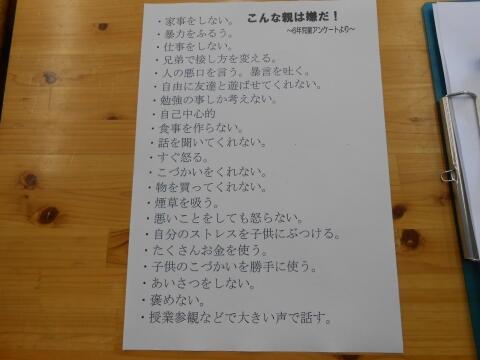 こんな親は嫌だ！
～6年児童アンケートより～
・家事をしない。
・暴力をふるう。
・仕事をしない。
・兄弟で接し方を変える。
・人の悪口を言う。暴言を吐く。
・自由に友達と遊ばせてくれない。
・勉強の事しか考えない。
・自己中心的
・食事を作らない。
・話を聞いてくれない。
・すぐ怒る。
・こづかいをくれない。
・物を買ってくれない。
・煙草を吸う。
・悪いことをしても怒らない。
・自分のストレスを子供にぶつける。
・たくさんお金を使う。
・子供のこづかいを勝手に使う。
・あいさつをしない。
・褒めない。
・授業参観などで大きい声で話す。